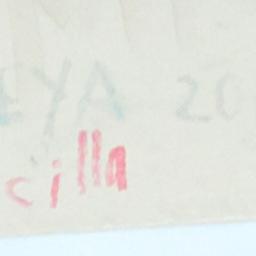 EYA 20
cilla